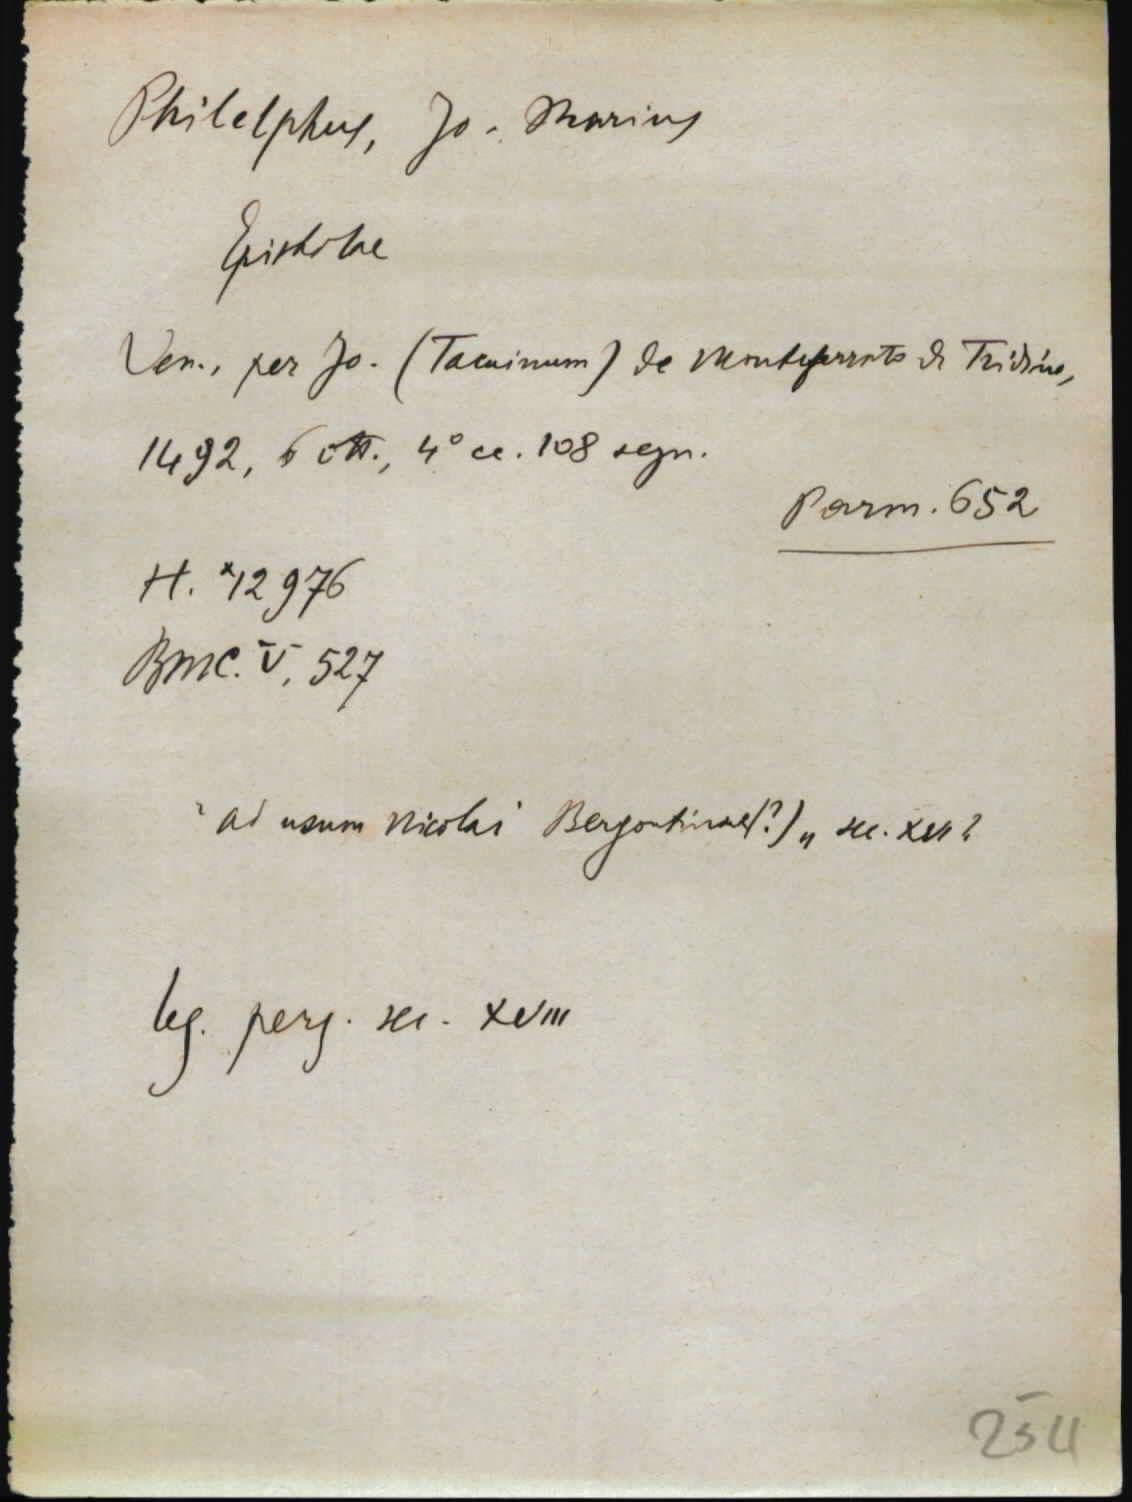 Philelphus, Jo. Marius
Epistolae
Ven., per Jo. (Tacuinum) de Monteferrato di Tridino,
1492, 6 ott., 4° cc. 108 segn.
Parm. 652
H. *12976
BMC. V, 527
"ad usum Nicolai (?)" sec. XVI?
leg. perg. sec. XVIII
254